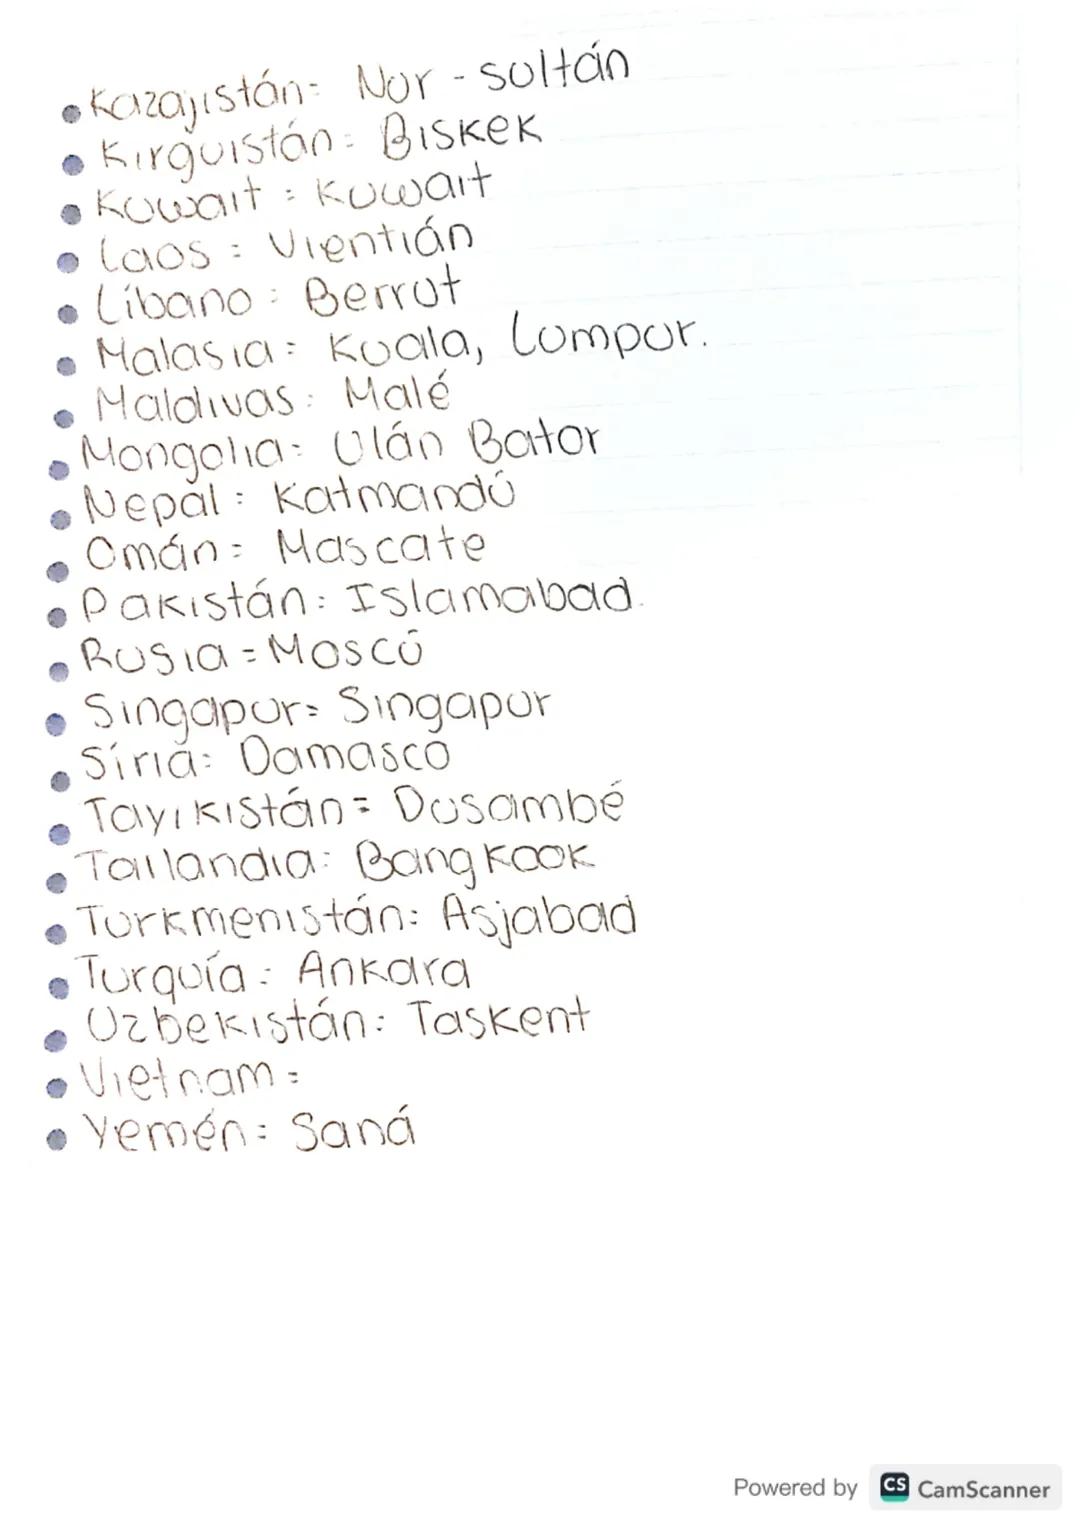 Kazajistán= Nur - sultán
Kirguistán= Biskek
Kuwait : Kuwait
Laos : Vientián
Líbano : Berrut
Malasia : Kuala, Lumpur.
Maldivas : Malé
Mongolia : Ulán Bator
Nepal : Katmandú
Omán : Mascate
Pakistán : Islamabad.
Rusia = Moscú
Singapur= Singapur
Síria: Damasco
Tayikistán= Dusambé
Tailandia: Bangkook
Turkmenistán: Asjabad
Turquía : Ankara
Uzbekistán: Taskent
Vietnam =
Yemén= Saná
Powered by CS CamScanner